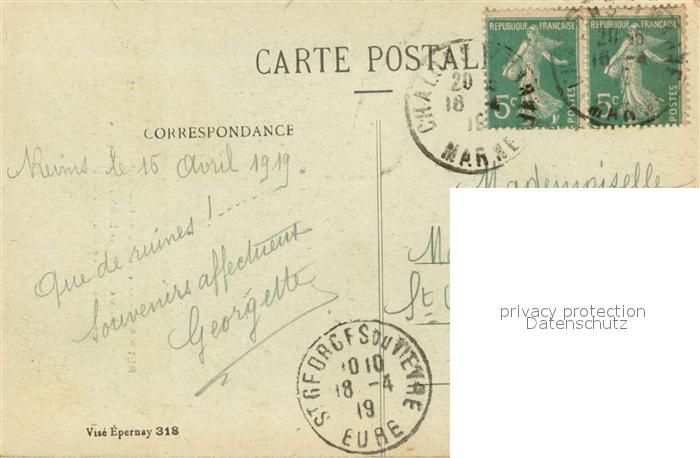 CARTE POSTALE
REPUBLIQUE FRANÇAISE
5c
POSTES
REPUBLIQUE FRANÇAISE
5c
POSTES
20
18 -4
19
MARNE
20
18 -4
MARNE
CORRESPONDANCE
Reims le 15 Avril 1919.
Mademoiselle
Que de ruines !......
Souvenirs affectueux
Georgette
St
ST GEORGES DU VIEVRE
1010
18 -4
19
EURE
privacy protection
Datenschutz
Visé Épernay 318